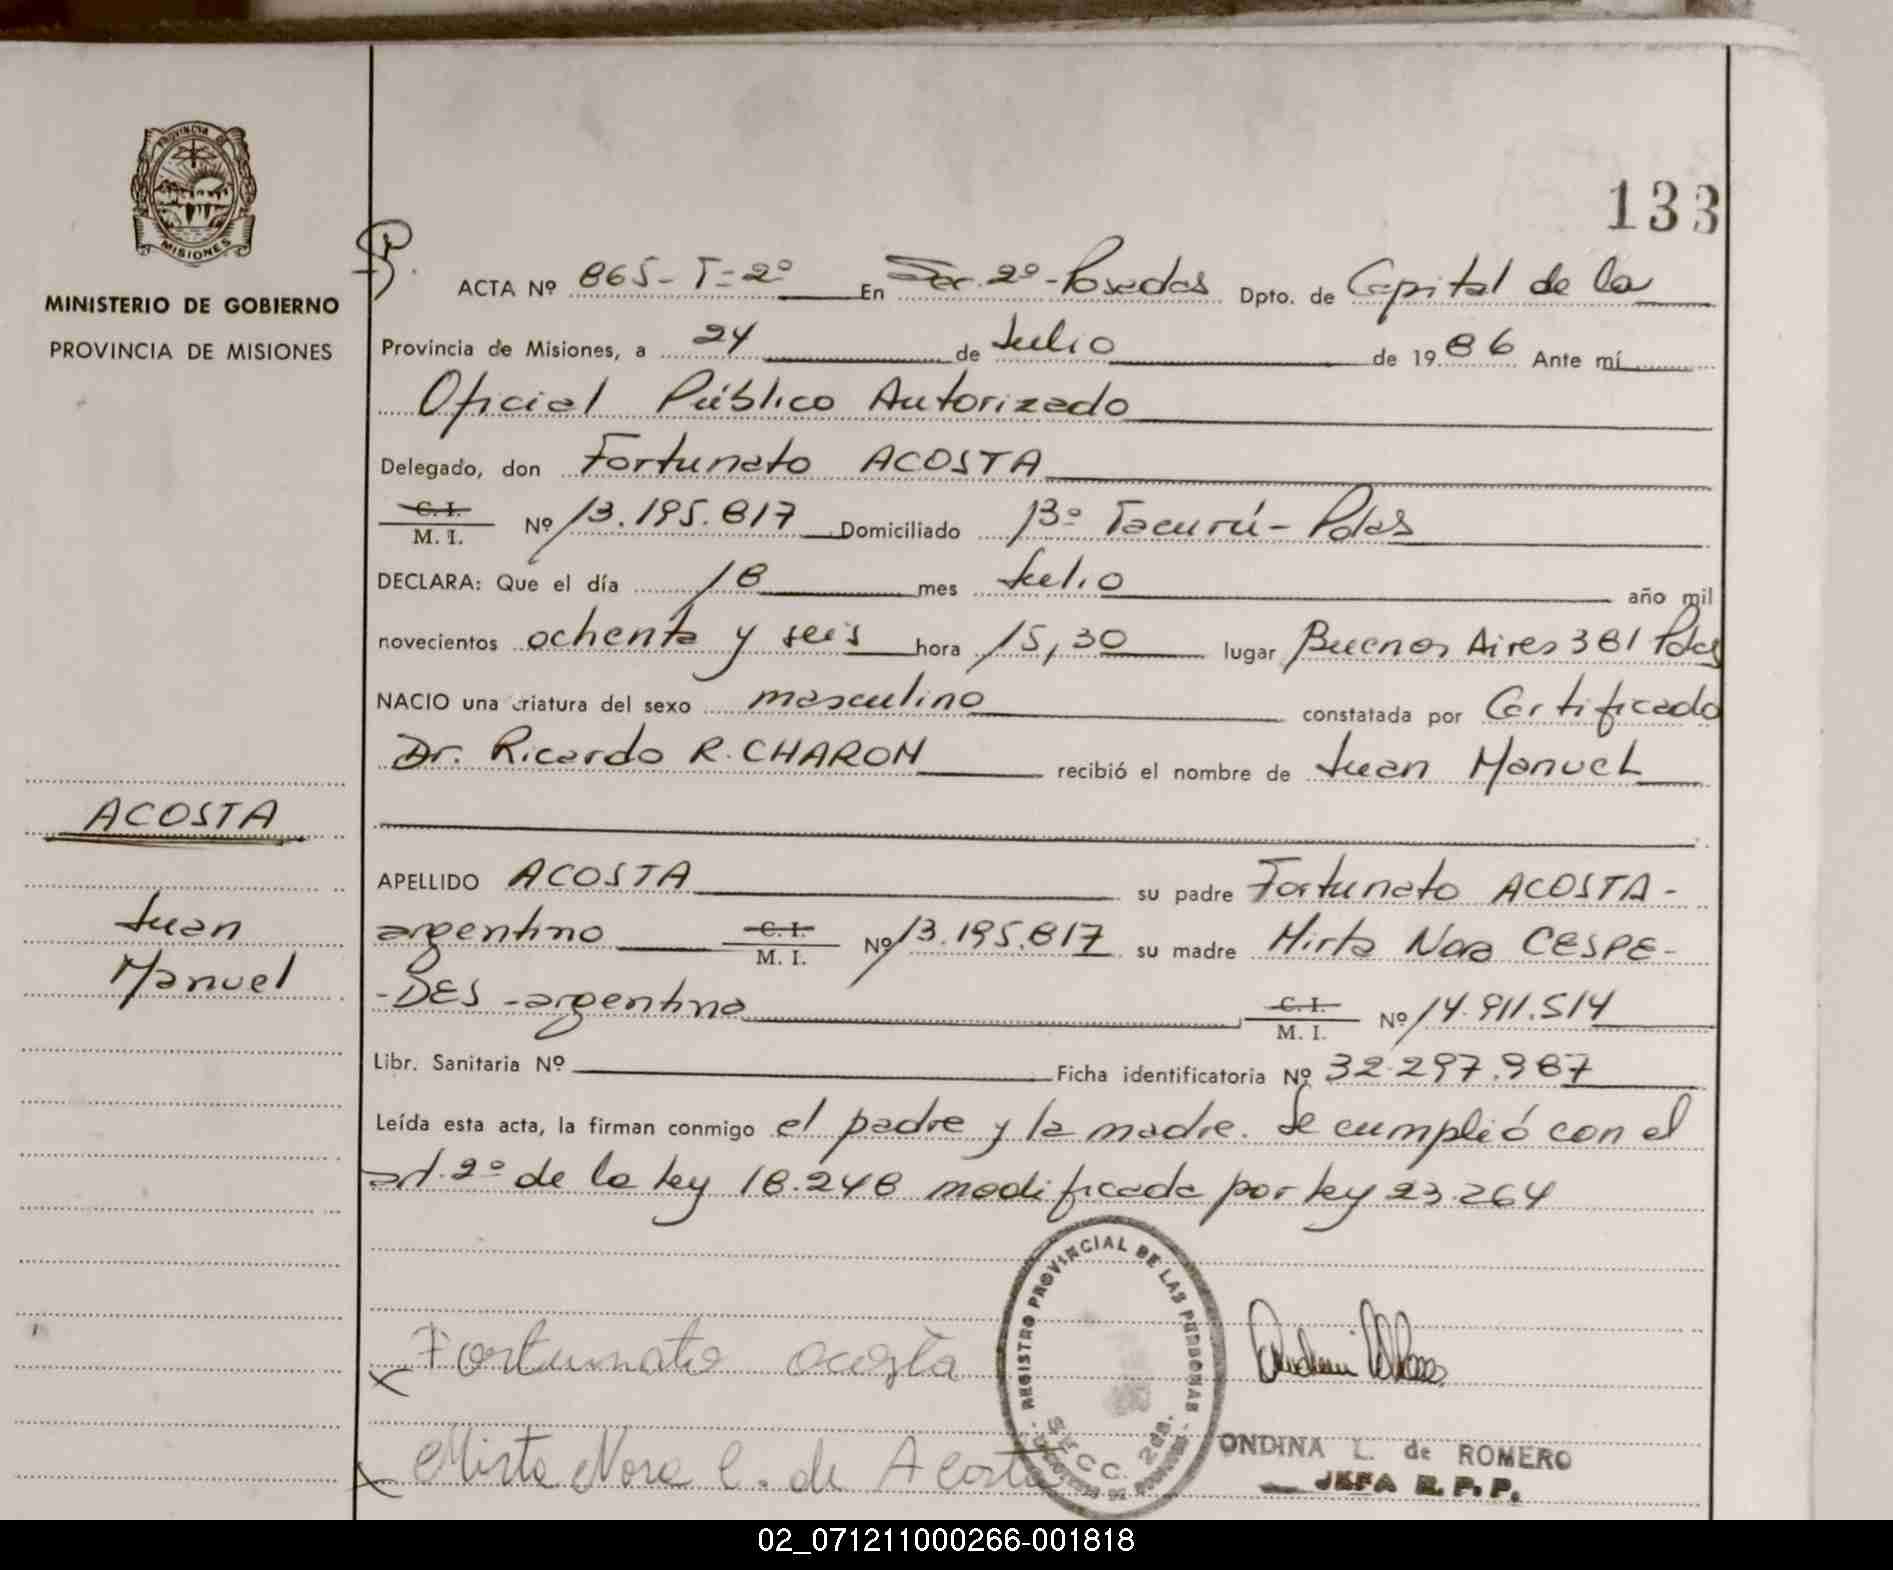 PROVINCIA DE
MISIONES
MINISTERIO DE GOBIERNO
PROVINCIA DE MISIONES
ACOSTA
Juan
Manuel
133
ACTA Nº 865-T=2º En Sec. 2º-Posadas Dpto. de Capital de la
Provincia de Misiones, a 24 de Julio de 1986 Ante mí
Oficial Público Autorizado
Delegado, don Fortunato ACOSTA
C. I.
M. I. Nº 13.195.817 Domiciliado Bº Tacurú- Pdas
DECLARA: Que el día 18 mes Julio año mil
novecientos ochenta y seis hora 15,30 lugar Buenos Aires 381 Pdas
NACIO una criatura del sexo masculino constatada por Certificado
Dr. Ricardo R. CHARON recibió el nombre de Juan Manuel
APELLIDO ACOSTA su padre Fortunato ACOSTA-
argentino C. I. M. I. Nº 13.195.817 su madre Mirta Nora CESPE-
-DES -argentina C. I. M. I. Nº 14.911.514
Libr. Sanitaria Nº Ficha identificatoria Nº 32.297.987
Leída esta acta, la firman conmigo el padre y la madre. Se cumplió con el
art. 2º de la ley 18.248 modificada por ley 23.264
Fortunato acosta
Mirta Nora C. de Acosta
REGISTRO PROVINCIAL DE LAS PERSONAS
SECC. 2da.
ONDINA L. de ROMERO
JEFA R.P.P.
02_071211000266-001818